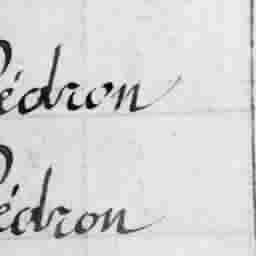 Pédron
Pédron